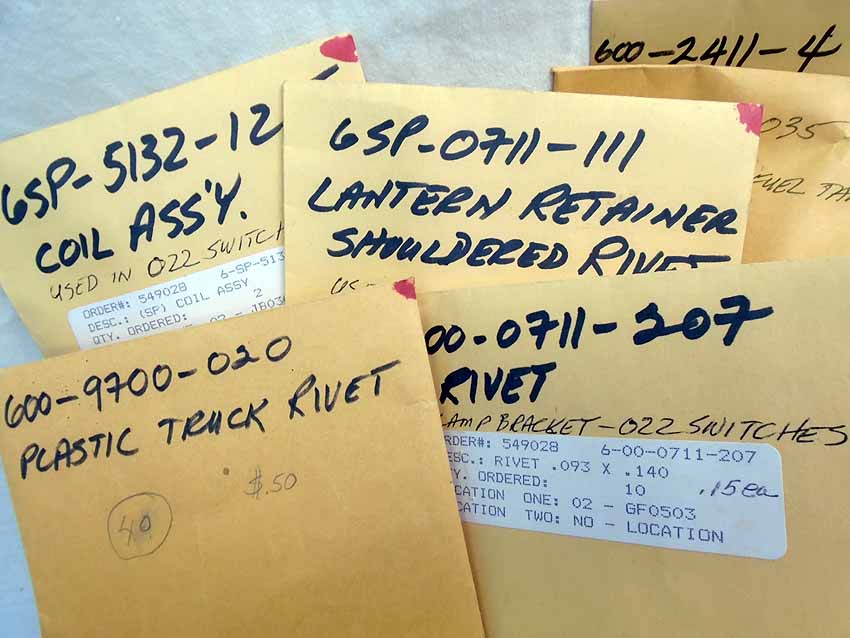 600-2411-4
6SP-5132-12
COIL ASS'Y.
USED IN 022 SWITCH
ORDER#: 549028 6-SP-513
DESC.: (SP) COIL ASSY
QTY. ORDERED: 2
6SP-0711-111
LANTERN RETAINER
SHOULDERED RIVET
035
FUEL TA
600-9700-020
PLASTIC TRUCK RIVET
$.50
40
00-0711-207
RIVET
AMP BRACKET-022 SWITCHES
RDER#: 549028 6-00-0711-207
ESC.: RIVET .093 X .140
Y. ORDERED: 10 .15ea
CATION ONE: 02 - GF0503
CATION TWO: NO - LOCATION